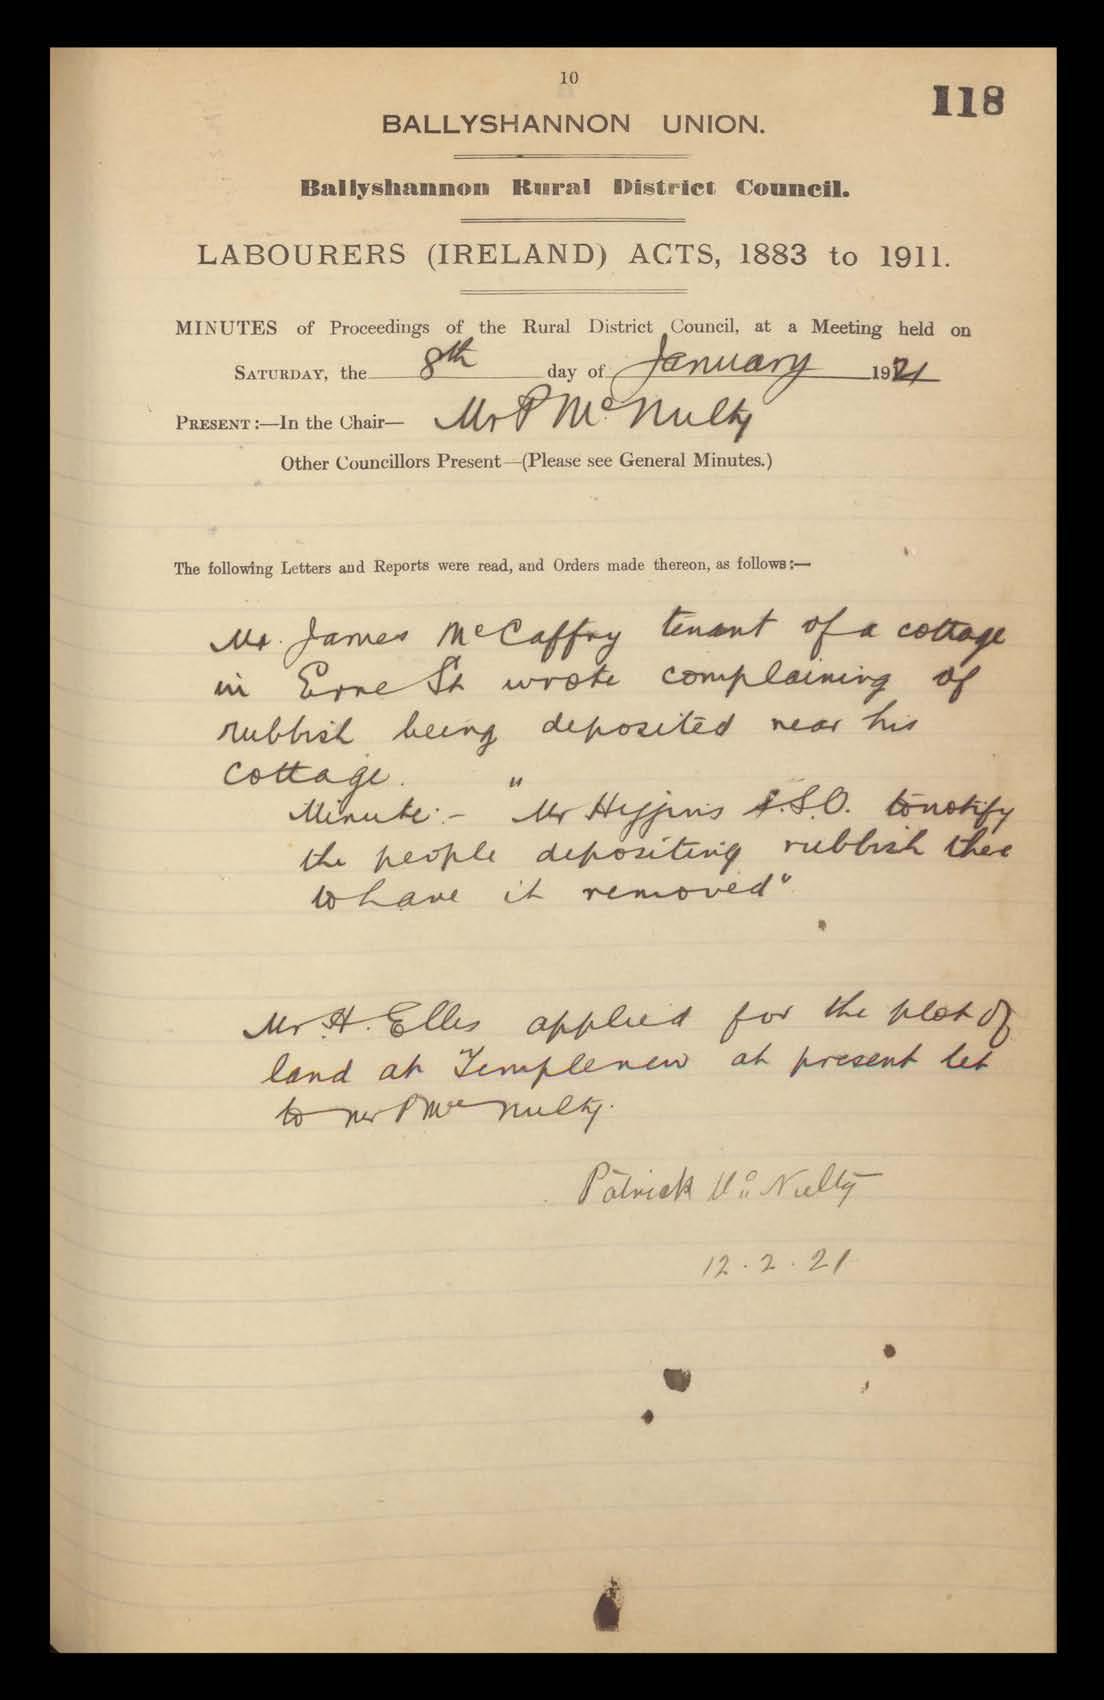 10
118
BALLYSHANNON UNION.
Ballyshannon Rural District Council.
LABOURERS (IRELAND) ACTS, 1883 to 1911.
MINUTES of Proceedings of the Rural District Council, at a Meeting held on
SATURDAY, the 8th day of January 1921
PRESENT:—In the Chair— Mr P McNulty
Other Councillors Present—(Please see General Minutes.)
The following Letters and Reports were read, and Orders made thereon, as follows:—
Mr. James McCaffry tenant of a cottage
in Erne St wrote complaining of
rubbish being deposited near his
cottage.
Minute:- "Mr Higgins S.S.O. to notify
the people depositing rubbish there
to have it removed"
Mr H. Ellis applied for the plot of
land at Templenew at present let
to Mr P McNulty.
Patrick McNulty
12.2.21